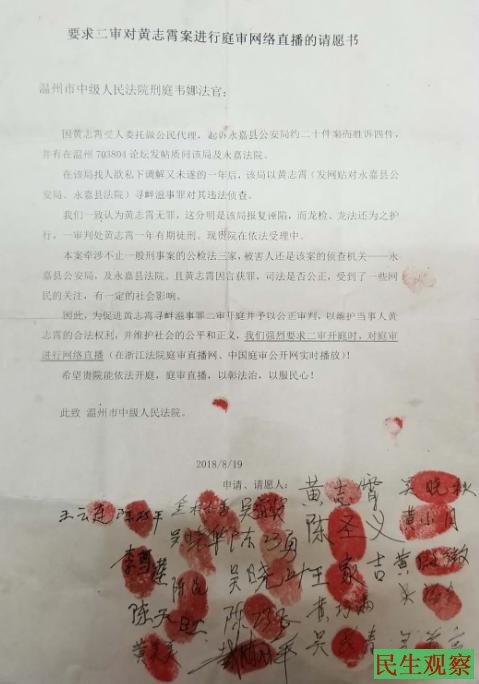 要求二审对黄志霄案进行庭审网络直播的请愿书
温州市中级人民法院刑庭韦娜法官:
因黄志霄受人委托做公民代理,起诉永嘉县公安局约二十件案而胜诉四件,
并有在温州 703804 论坛发帖质问该局及永嘉法院。
在该局找人欲私下调解又未遂的一年后,该局以黄志霄(发网贴对永嘉县公
安局、永嘉县法院)寻衅滋事罪对其违法侦查。
我们一致认为黄志霄无罪,这分明是该局报复诬陷,而龙检、龙法还为之护
行。一审判处黄志霄一年有期徒刑。现贵院在依法受理中。
本案牵涉不止一般刑事案的公检法三家,被害人还是该案的侦查机关——永
嘉县公安局,及永嘉县法院。且黄志霄因言获罪,司法是否公正,受到了一些网
民的关注,有一定的社会影响。
因此,为促进黄志霄寻衅滋事罪二审开庭并予以公正审判,以维护当事人黄
志霄的合法权利,并维护社会的公平和正义,我们强烈要求二审开庭时,对庭审
进行网络直播(在浙江法院庭审直播网、中国庭审公开网实时播放)!
希望贵院能依法开庭,庭审直播,以彰法治,以服民心!
此致 温州市中级人民法院。
2018/8/19
申请、请愿人: 黄志霄 吴晓秋
王云莲 陈 平 吴 陈圣义 黄小月
吴 华 陈 勇 王家吉 黄 微
陈 吴晓 黄
陈 陈 吴 青
黄
民生观察